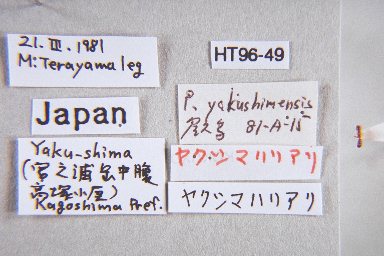 21. III. 1981
M. Terayama leg
HT96-49
Japan
P. yakushimensis
屋久島 81-A-15
Yaku-shima
(宮之浦岳中腹
高塚小屋)
Kagoshima Pref.
ヤクシマハリアリ
ヤクシマハリアリ